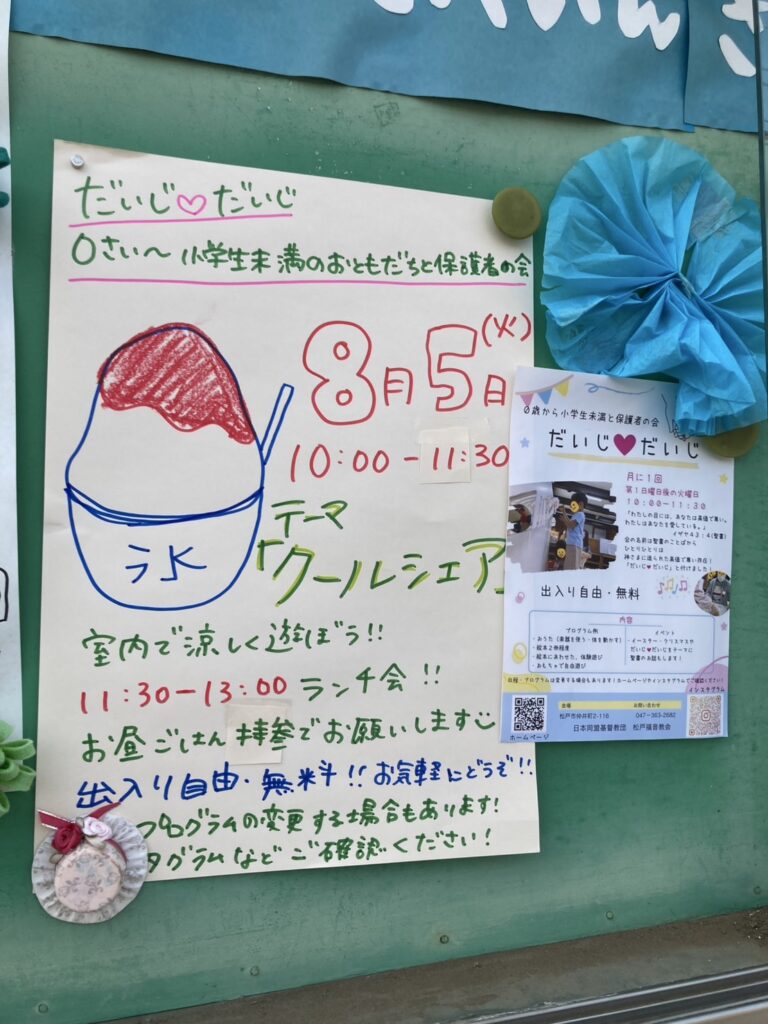 だいじ♡だいじ
0さい〜小学生未満のおともだちと保護者の会
8月5日(火)
10:00-11:30
テーマ
「クールシェア」
氷
室内で涼しく遊ぼう!!
11:30-13:00 ランチ会!!
お昼ごはん持参でお願いします
出入り自由・無料!!お気軽にどうぞ!!
プログラムの変更する場合もあります!
タグラムなどご確認ください!
0歳から小学生未満と保護者の会
だいじ♥だいじ
月に1回
第1日曜日後の火曜日
10:00〜11:30
「わたしの目には、あなたは高価で尊い。
わたしはあなたを愛している。」
イザヤ43:4(聖書)
会の名前は聖書のことばから
ひとりひとりは
神さまに造られた高価で尊い存在!
「だいじ♥だいじ」と付けました!
出入り自由・無料
内容
プログラム例
・おうた(楽器を使う・体を動かす)
・絵本2冊程度
・絵本にあわせた、体験遊び
・おもちゃで自由遊び
イベント
・イースター・クリスマスや
だいじ♥だいじをテーマに
聖書のお話もします!
日程・プログラムは変更する場合もあります!ホームページやインスタグラムでご確認ください!
インスタグラム
会場
松戸市仲井町2-116
お問い合わせ
047-363-2682
日本同盟基督教団 松戸福音教会
ホームページ